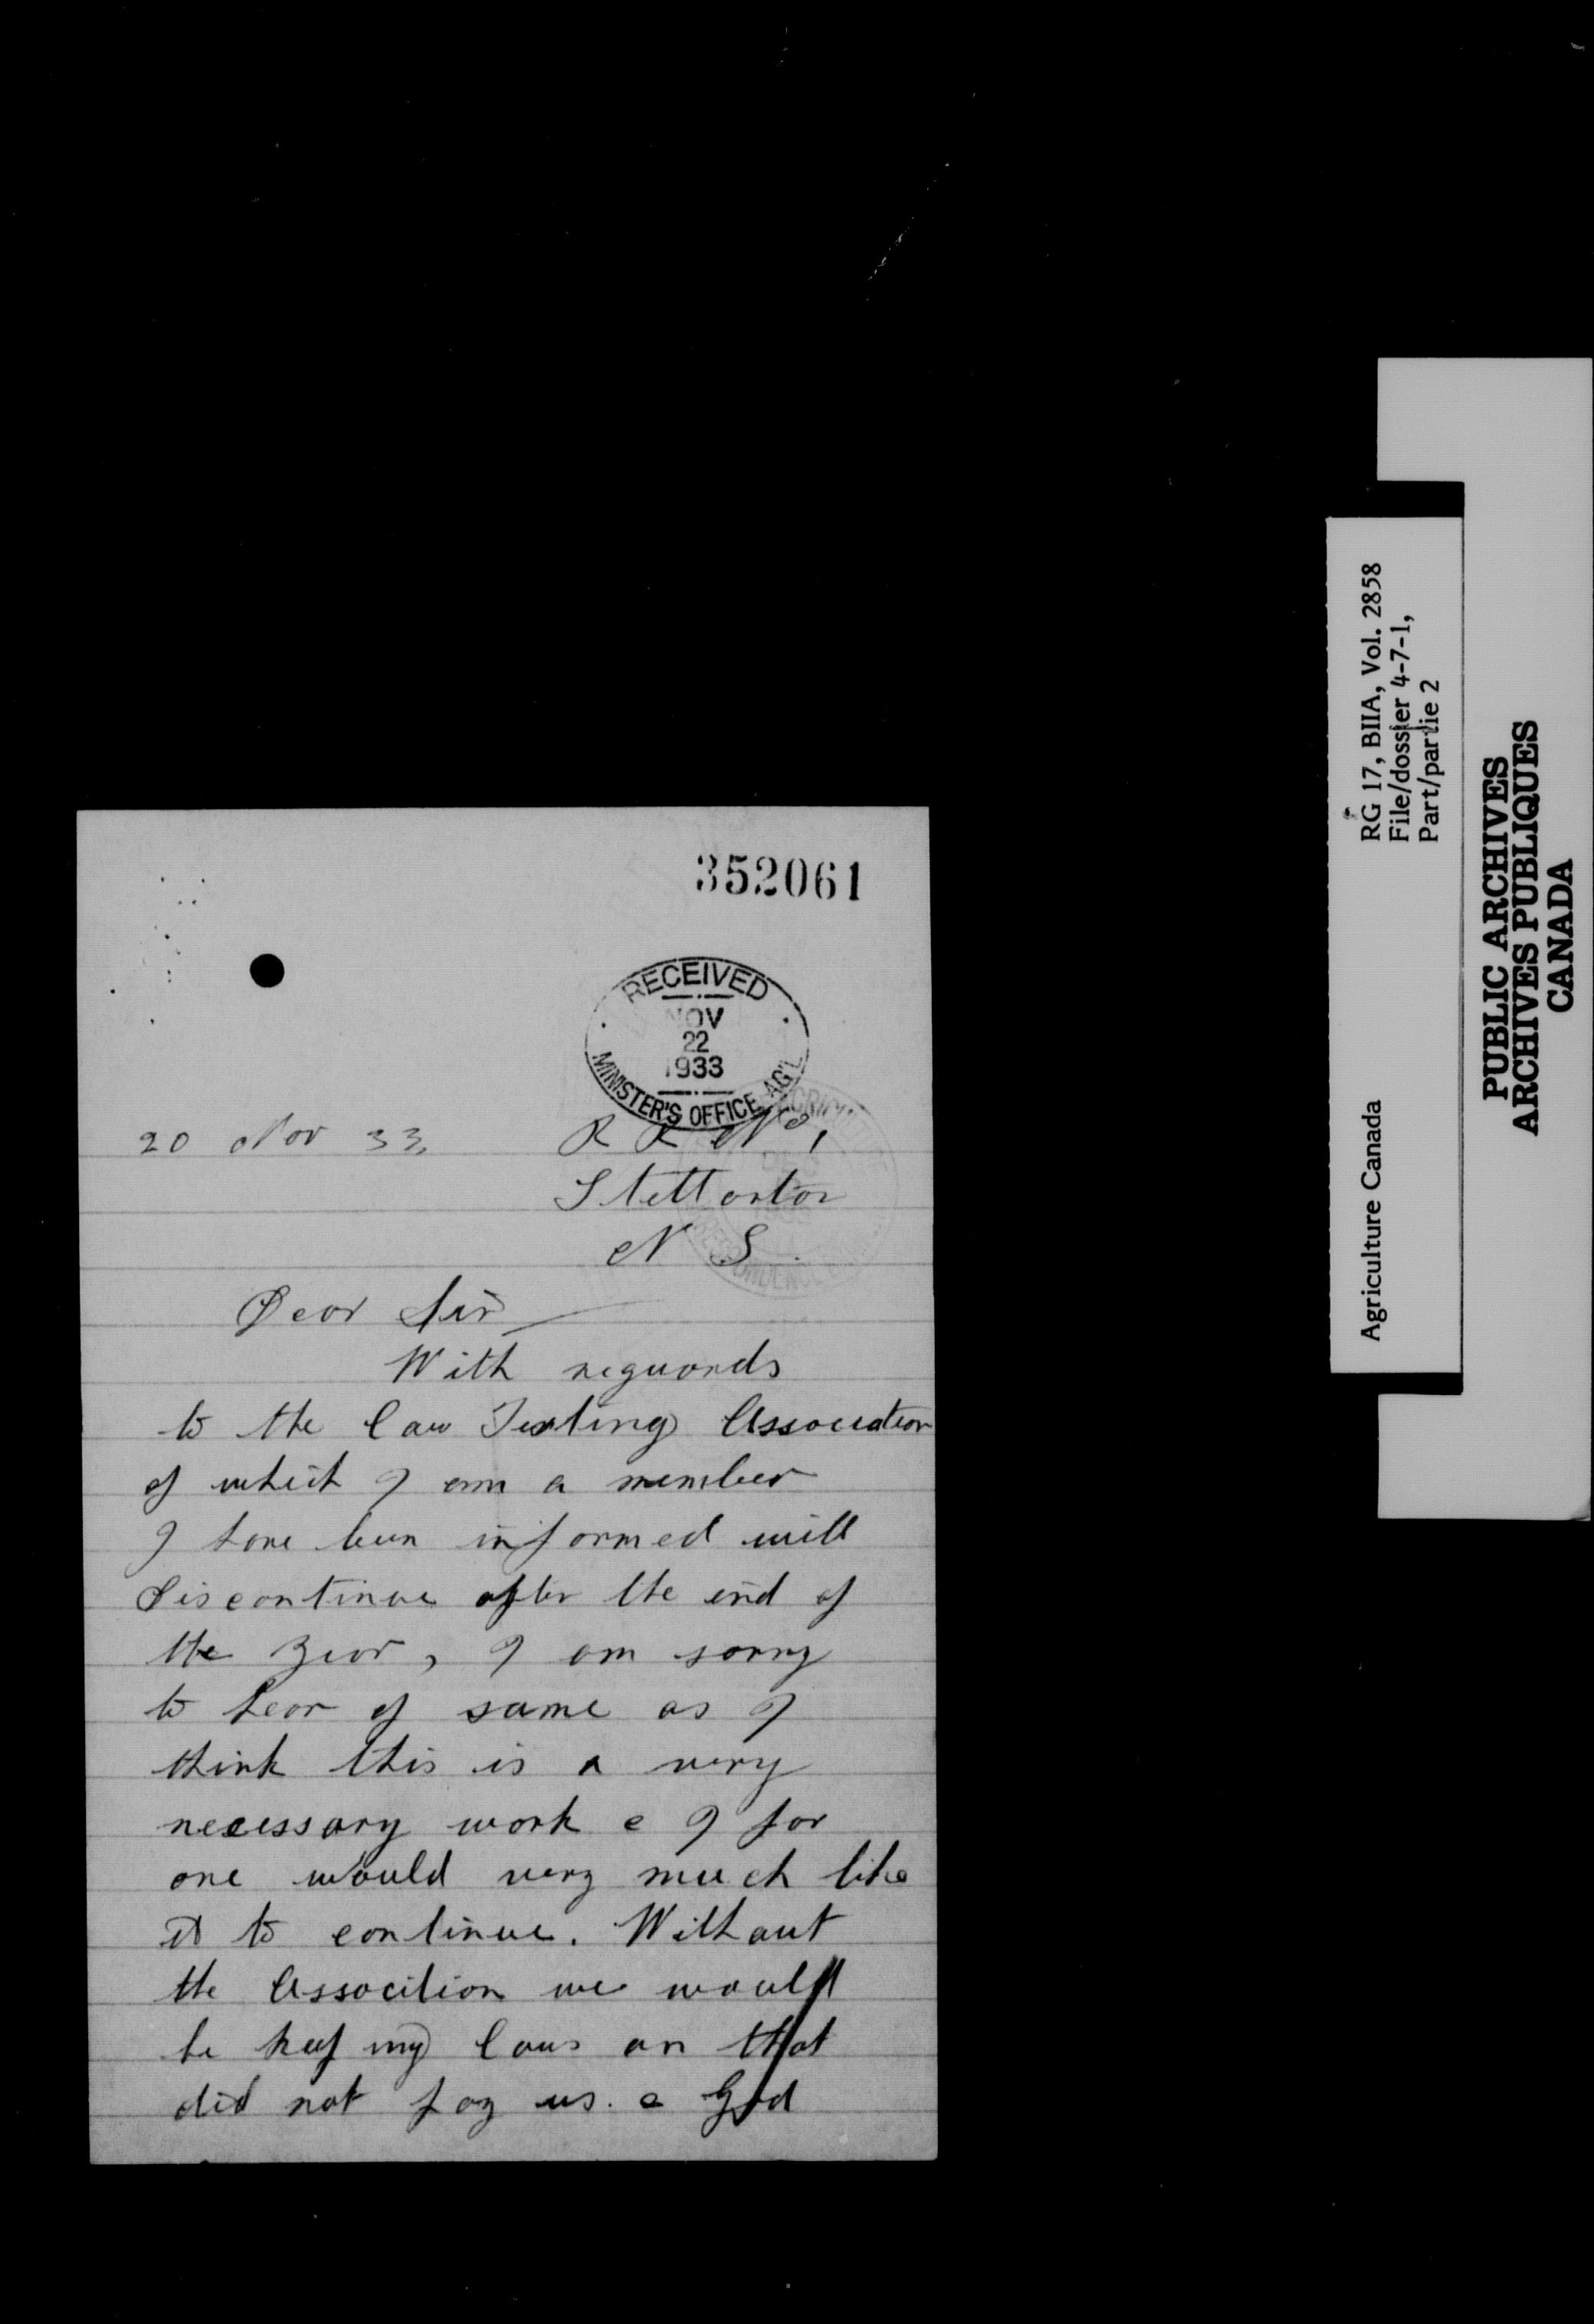 352061
RECEIVED
NOV
22
1933
MINISTER'S OFFICE AG'L
20 Nov 33, R R No 1
Stellarton
N S.
Dear Sir
With reguards
to the Cow Testing Association
of which I am a member
I have been informed will
discontinue after the end of
the year, I am sorry
to hear of same as I
think this is a very
necessary work & I for
one would very much like
it to continue. Without
the Assocition we would
be keeping Cows on that
did not pay us. a
RG 17, BIIA, Vol. 2858
File/dossier 4-7-1,
Part/partie 2
Agriculture Canada
PUBLIC ARCHIVES
ARCHIVES PUBLIQUES
CANADA